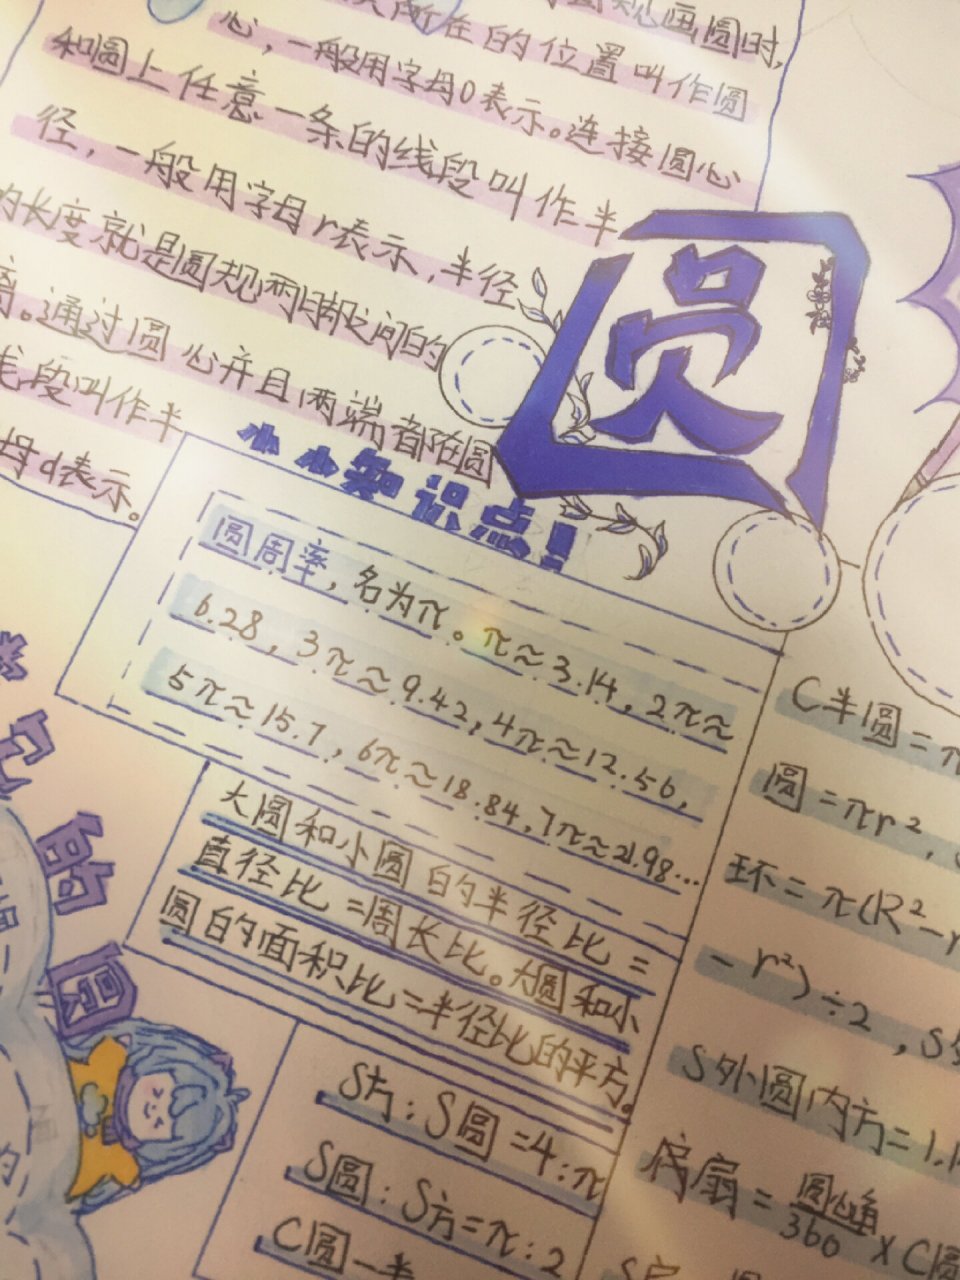 规画圆时,
所在的位置叫作圆
心,一般用字母O表示。连接圆心
和圆上任意一条的线段叫作半
径,一般用字母r表示,半径
的长度就是圆规两脚之间的
离。通过圆心并且两端都在圆
线段叫作半
母d表示。
圆
小小知识点!
圆周率,名为π。π≈3.14,2π≈
6.28,3π≈9.42,4π≈12.56,
5π≈15.7,6π≈18.84,7π≈21.98...
大圆和小圆的半径比=
直径比=周长比。大圆和小
圆的面积比=半径比的平方。
S方:S圆=4:π
S圆:S方=π:2
C圆一半
C半圆=π
圆=πr²,
环=π(R²-r
-r²)÷2,S
S外圆内方=1.1
扇=圆心角/360×C圆
的圆